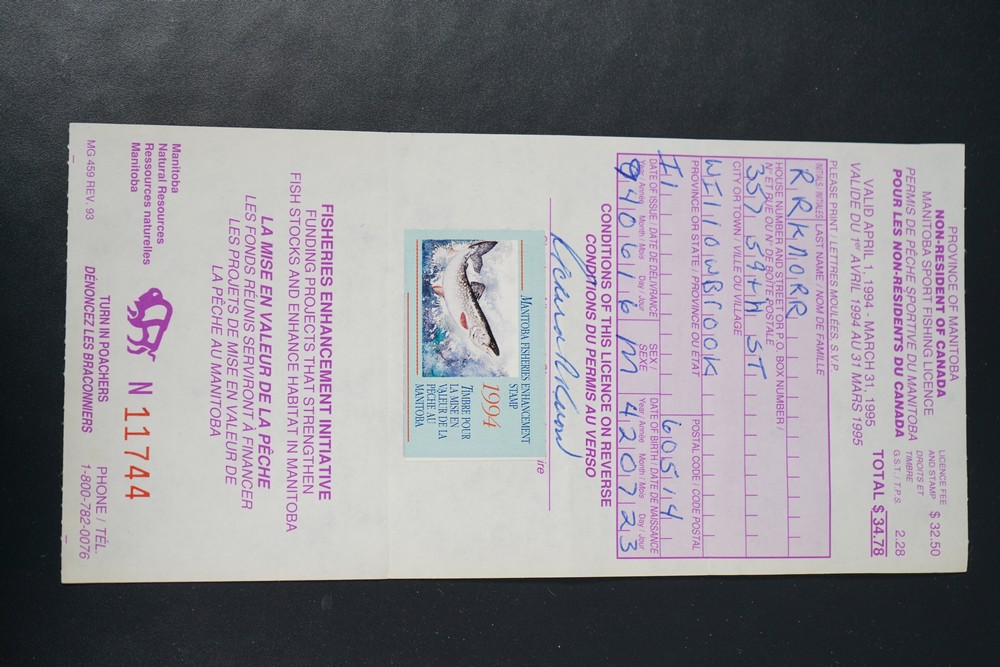 PROVINCE OF MANITOBA
NON-RESIDENT OF CANADA
MANITOBA SPORT FISHING LICENCE
PERMIS DE PÊCHE SPORTIVE DU MANITOBA
POUR LES NON-RÉSIDENTS DU CANADA
LICENCE FEE
AND STAMP $ 32.50
DROITS ET
TIMBRE
G.S.T./T.P.S. 2.28
VALID APRIL 1, 1994 - MARCH 31, 1995
VALIDE DU 1er AVRIL 1994 AU 31 MARS 1995
TOTAL $ 34.78
PLEASE PRINT / LETTRES MOULÉES, S.V.P.
INITIALS / INITIALES LAST NAME / NOM DE FAMILLE
R R KNORR
HOUSE NUMBER AND STREET OR P.O. BOX NUMBER /
Nº ET RUE OU Nº DE BOÎTE POSTALE
357 59th ST
CITY OR TOWN / VILLE OU VILLAGE
WILLOWBROOK
PROVINCE OR STATE / PROVINCE OU ÉTAT POSTAL CODE / CODE POSTAL
IL 60514
DATE OF ISSUE / DATE DE DÉLIVRANCE SEX / SEXE DATE OF BIRTH / DATE DE NAISSANCE
Year / Année Month / Mois Day / Jour Year / Année Month / Mois Day / Jour
940616 M 420723
CONDITIONS OF THIS LICENCE ON REVERSE
CONDITIONS DU PERMIS AU VERSO
ire
MANITOBA FISHERIES ENHANCEMENT
STAMP
1994
TIMBRE POUR
LA MISE EN
VALEUR DE LA
PÊCHE AU
MANITOBA
FISHERIES ENHANCEMENT INITIATIVE
FUNDING PROJECTS THAT STRENGTHEN
FISH STOCKS AND ENHANCE HABITAT IN MANITOBA
LA MISE EN VALEUR DE LA PÊCHE
LES FONDS RÉUNIS SERVIRONT À FINANCER
LES PROJETS DE MISE EN VALEUR DE
LA PÊCHE AU MANITOBA
Manitoba
Natural Resources
Ressources naturelles
Manitoba
N 11744
TURN IN POACHERS
DÉNONCEZ LES BRACONNIERS
PHONE / TÉL.
1-800-782-0076
MG 459 REV. 93